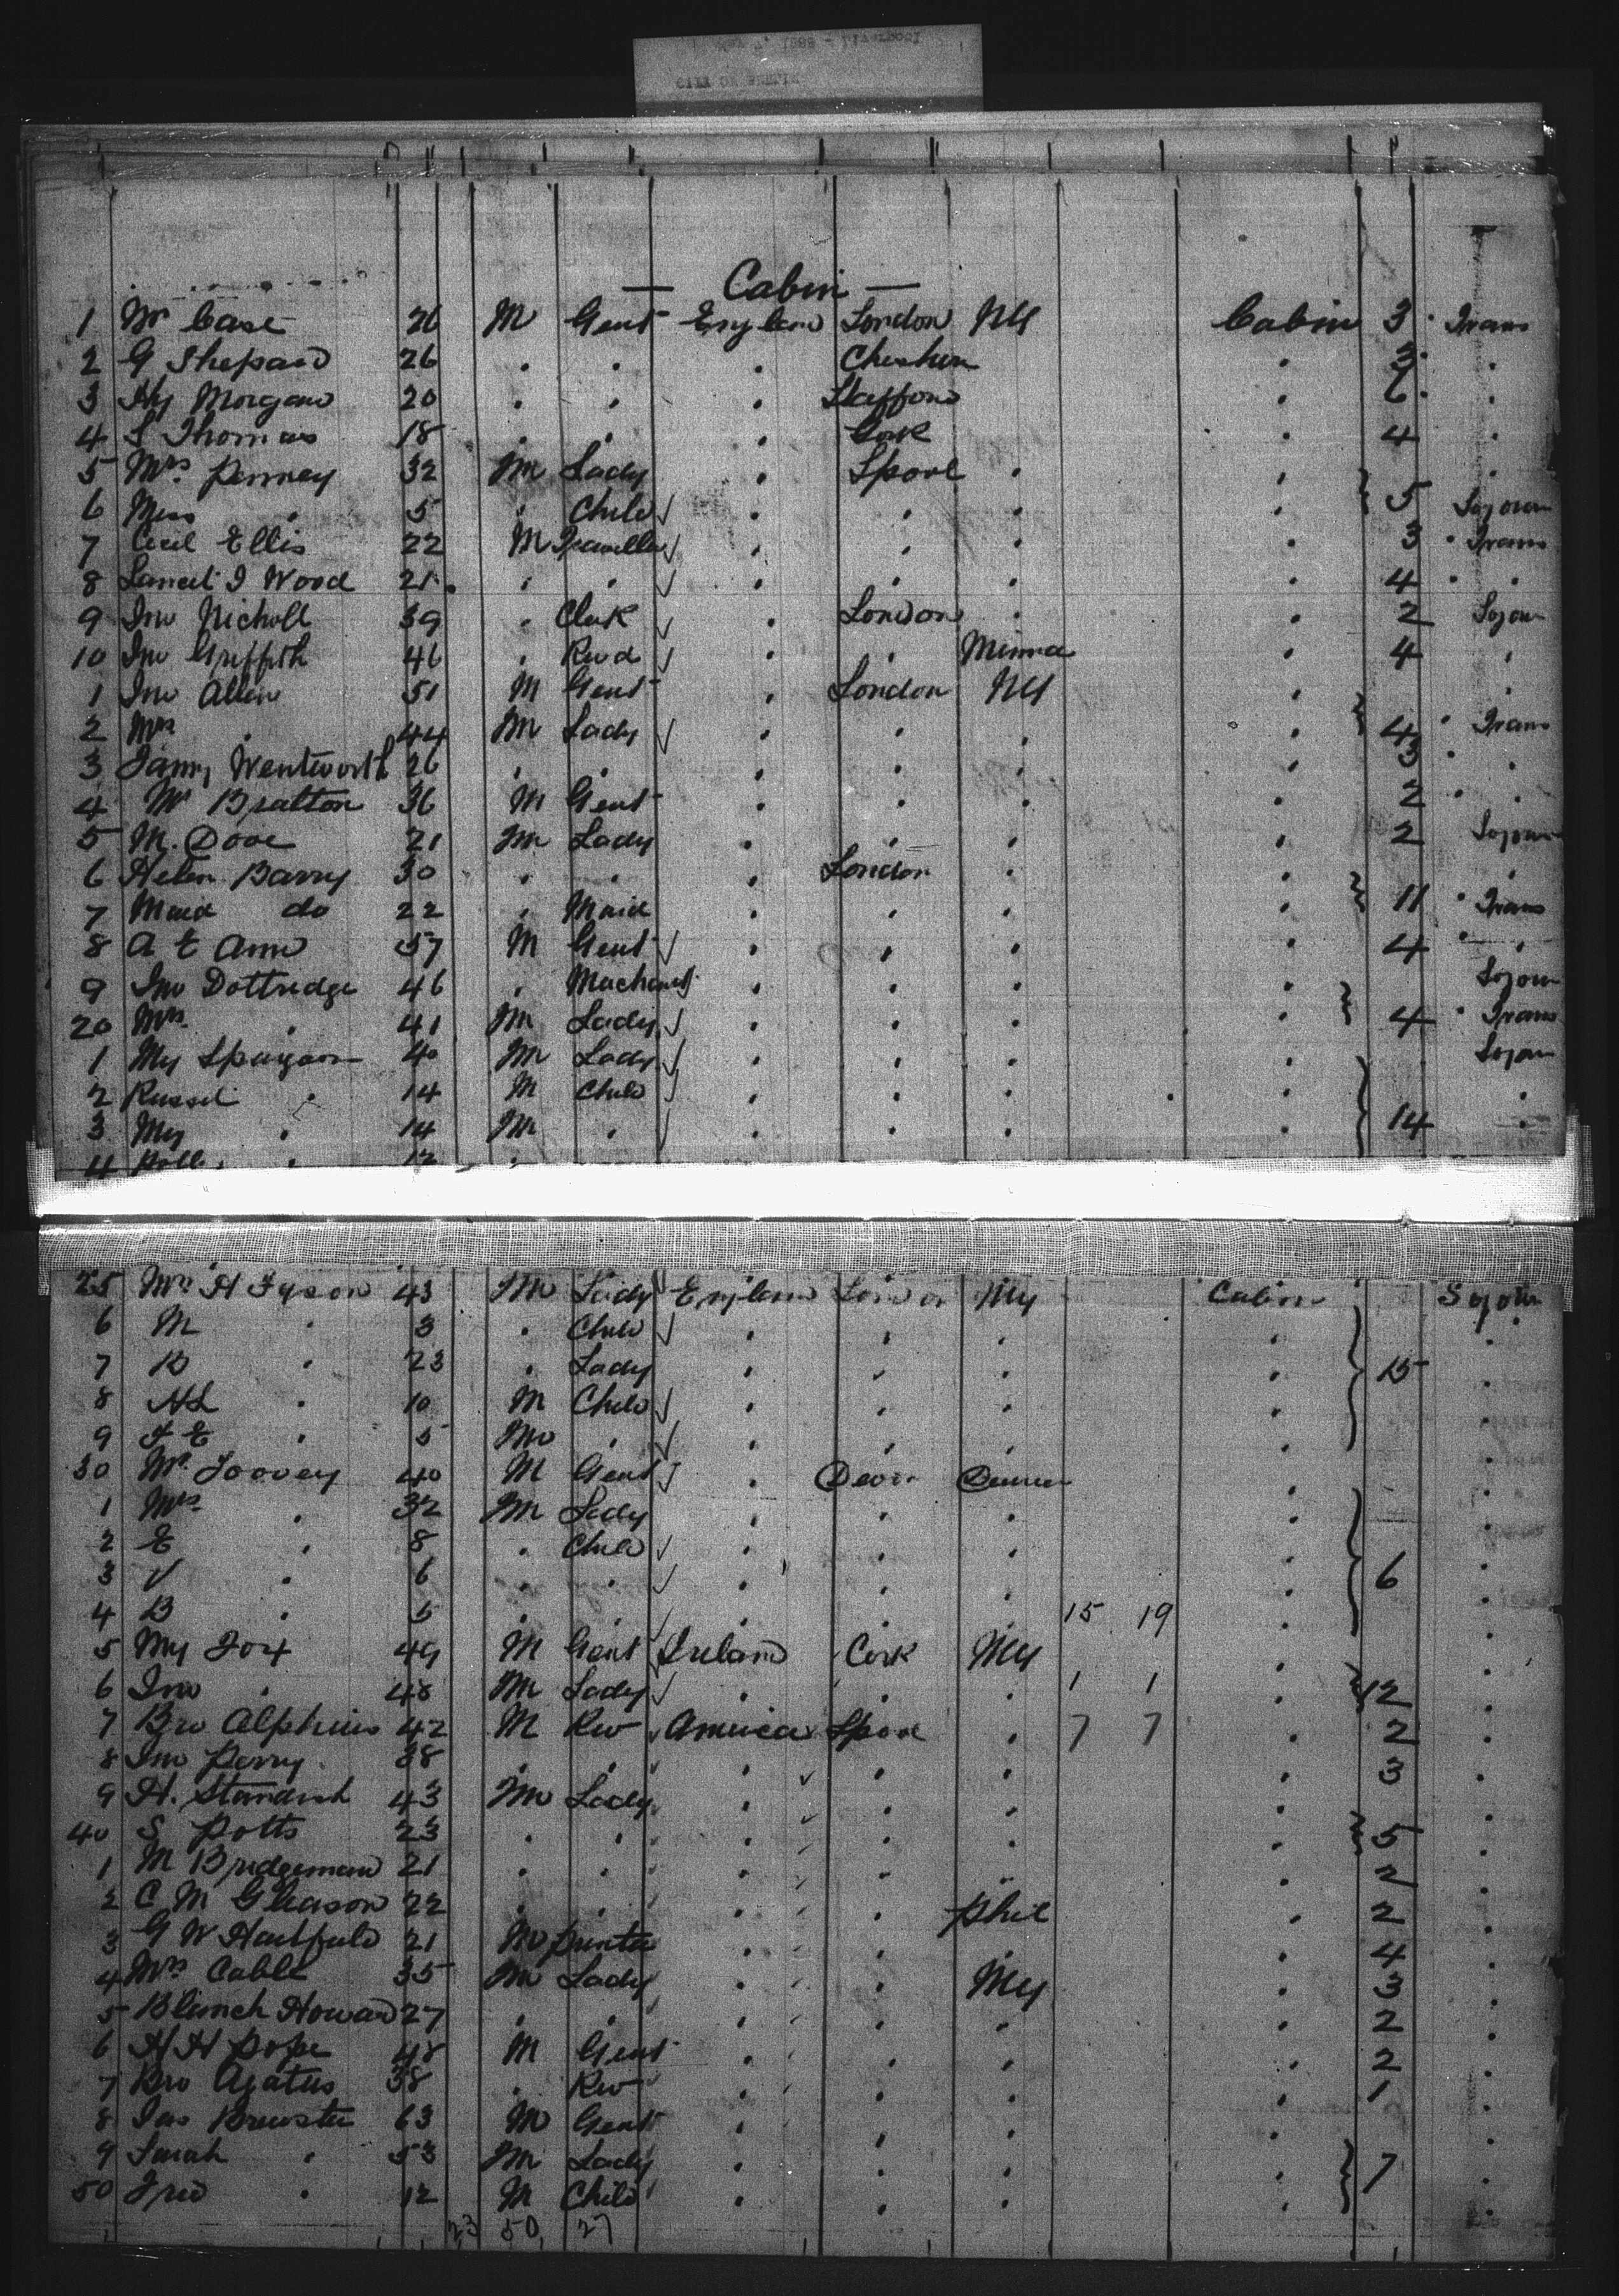 — Cabin —
1 Wm Case 26 M Gent England London NY Cabin 3 Trans
2 G Shepard 26 . . . Cheshire . 3 .
3 Hy Morgan 20 . . . Stafford . 6 .
4 S Thomas 18 . . . Cork . 4 .
5 Mrs Penney 32 M Lady . Lpool . . .
6 Miss . 5 . Child . . . . 5 Sojourn
7 Cecil Ellis 22 M Traveller . . . . 3 Trans
8 I Wood 21 . . . . . . 4 . .
9 Jno Nicholl 39 . Clerk . London . . 2 Sojour
10 Jno Griffith 46 . Revd . . Minna . 4 .
1 Jno Allen 51 M Gent . London NY . .
2 Mrs . 44 M Lady . . . . 4 Trans
3 Fanny Wentworth 26 . . . . . . 3 .
4 Mr Bratton 36 M Gent . . . . 2 . .
5 M. Dove 21 M Lady . . . . 2 Sojour
6 Helen Barry 30 . . . London . . .
7 Maid do 22 . Maid . . . . 11 Trans
8 A E Ann 57 M Gent . . . . 4 . .
9 Jno Dottridge 46 . Merchant . . . . Sojour
20 Mrs . 41 M Lady . . . . 4 Trans
1 My 40 M Lady . . . . Sojour
2 Russel . 14 M Child . . . . .
3 My . 14 M . . . . . 14 .
4 . 12 .
25 Mrs H Tyson 43 M Lady England London NY Cabin Sojour
6 M . 3 . Child . . . . .
7 B . 23 . Lady . . . . 15 .
8 HL . 10 M Child . . . . .
9 F E . 5 M . . . . .
30 Mr Toovey 40 M Gent . Devon Denver . .
1 Mrs . 32 M Lady . . . . .
2 E . 8 . Child . . . . .
3 V . 6 . . . . . . 6 .
4 B . 5 . . . . . 15 19 . .
5 My Fox 49 M Gent Ireland Cork NY . .
6 Jno . 48 M Lady . . . 1 1 . 12 .
7 Bro Alphius 42 M Rev America Lpool . 7 7 . 2 .
8 Jno Perry 38 . . . . . . 3 .
9 H. Standish 43 M Lady . . . . .
40 S Potts 23 . . . . . . 5 .
1 M Bridgeman 21 . . . . . . 2 .
2 C M Gleason 22 . . . . Phil . 2 .
3 G W 21 M Printer . . . . 4 .
4 Mrs Cable 35 M Lady . . NY . 3 .
5 Blanch Howard 27 . . . . . . 2 .
6 H H Pope 48 M Gent . . . . 2 .
7 Bro Azatus 38 . Rev . . . . 1 .
8 Jas Brewster 63 M Gent . . . . .
9 Sarah . 53 M Lady . . . . 7 .
50 Fred . 12 M Child . . . . .
23 50 27